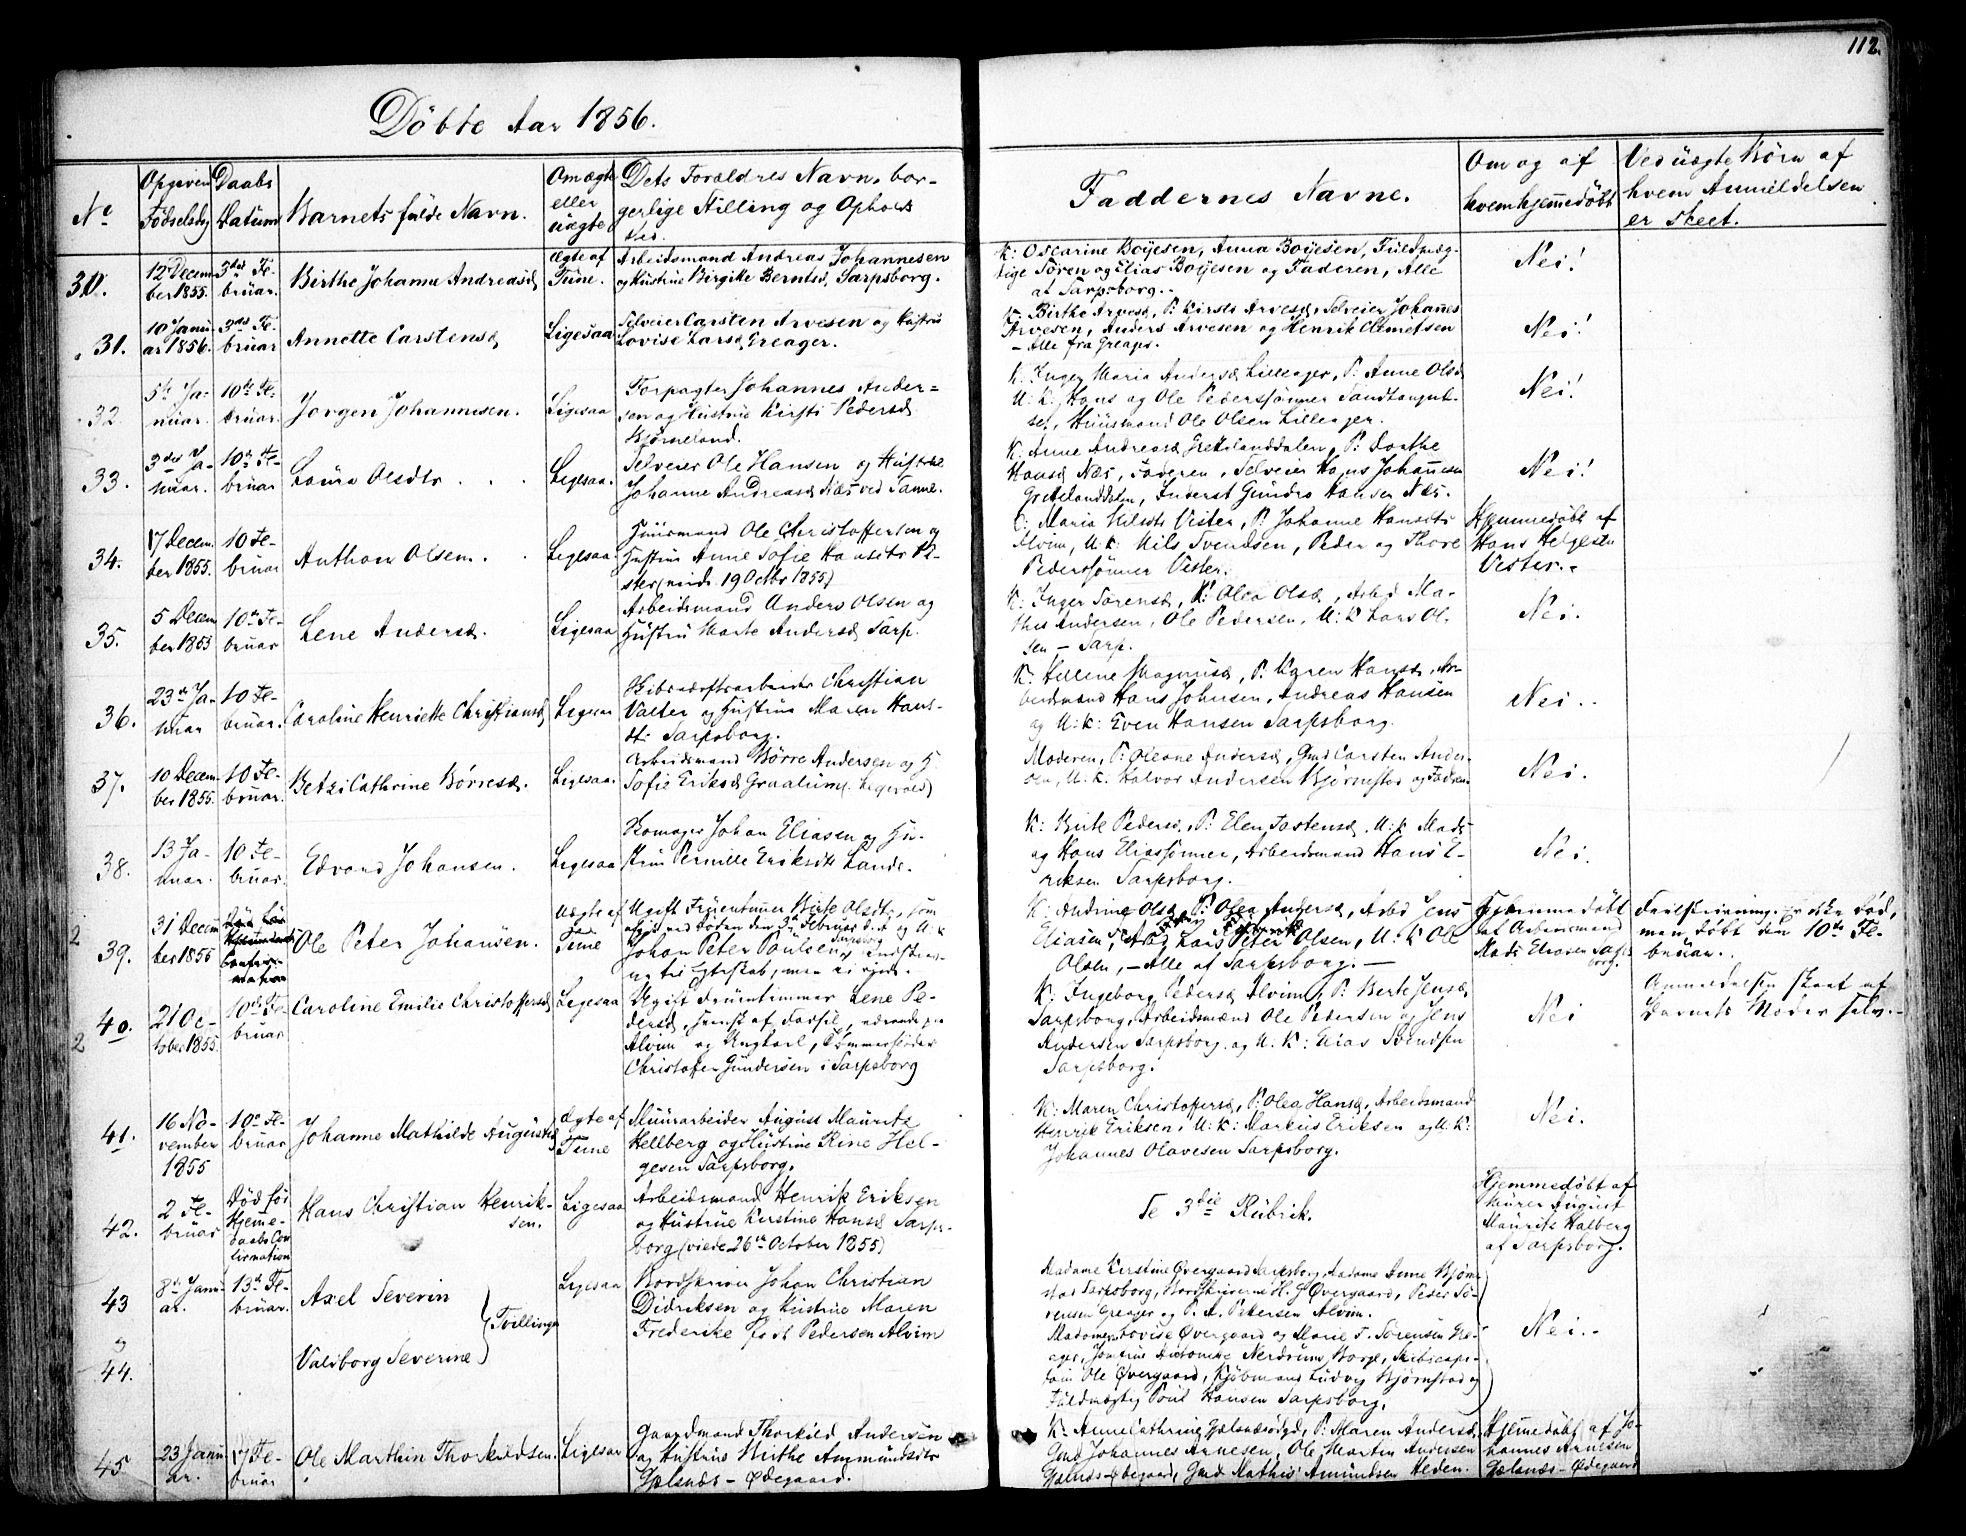 112.
Döbte Aar 1856.
No
Opgiven
Fødselsdag
Daabs
Datum
Barnets fulde Navn.
Om ægte
eller
uægte
Dets Forældres Navn, bor-
gerlige Stilling og Opholds
Sted.
Faddernes Navne.
Om og af
hvem hjemmedöbt
Ved uægte Börn af
hvem Anmeldelsen
er skeet.
30.
12 Decem
ber 1855.
3die Fe-
bruar.
Birthe Johanne Andreasd.
Ægte af
Tune.
Arbeidsmand Andreas Johannesen
og Hustrue Birgitte Berntsd, Sarpsborg.
K: Oscarine Boÿesen, Anna Boÿesen, Fuldmæg-
tige Sören og Elias Boÿesen og Faderen, Alle
af Sarpsborg.
Nei!
31.
10 Janu
ar 1856.
3die Fe-
bruar
Annette Carstensd
Ligesaa
Selveier Carsten Arvesen og Hustru
Lovise Larsd Greager.
K: Birthe Arvesd, P: Kirsti Arvesd, Selveier Johannes
Arvesen, Anders Arvesen og Henrik Clemetsen
– Alle fra Greager.
Nei!
32
5te Ja-
nuar.
10de Fe-
bruar.
Jörgen Johannesen.
Ligesaa
Forpagter Johannes Ander-
sen og Hustrue Kirsti Pedersd
Björneland.
K: Inger Maria Andersd Lilleager, P: Anne Olsd
U: K: Hans og Ole Pederssönner
Huusmand Ole Olsen Lilleager.
Nei!
33.
3die Ja-
nuar.
10de Fe-
bruar
Laura Olsdtr
Ligesaa.
Selveier Ole Hansen og Hustrue
Johanne Andreasd Næs ved Tanne.
K: Anne Andreasd Gretelanddalen, P: Dorthe
Hansd Næs, Faderen, Selveier Hans Johannesen
Gretelanddalen, Inderst Gundro Hansen Næs.
Nei!
34.
17 Decem
ber 1855.
10 Fe-
bruar
Anthon Olsen.
Ligesaa
Huusmand Ole Christoffersen og
Hustrue Anne Sofie Hansdtr Ve-
ster (viede 19 Octbr 1855)
K: Maria Nilsdtr Vister, P: Johanne Hansdtr
Alvim, U: K: Nils Svendsen, Peder og Thore
Pederssönner Vister.
Hjemmedöbt af
Hans Helgesen
Vister.
35.
5 Decem
ber 1855
10de Fe-
bruar
Lene Andersd.
Ligesaa
Arbeidsmand Anders Olsen og
Hustru Marte Andersd Sarp.
K: Inger Sörensd, P: Olea Olsd, Arbd Ma-
this Andersen, Ole Pedersen, U: K Lars Ol-
sen – Sarp.
Nei.
36.
23de Ja-
nuar
10 Fe-
bruar.
Caroline Henriette Christiansd
Ligesaa
Skibsværftsarbeider Christian
Valter og Hustrue Maren Hans-
dtr Sarpsborg.
K: Hellene Magnusd, P: Karen Hansd, Ar-
beidsmand Hans Johnsen, Andreas Hansen
og U: K: Even Hansen Sarpsborg.
Nei.
37.
10 Decem
ber 1855.
10 Fe-
bruar.
Betzi Cathrine Börresd.
Ligesaa.
Arbeidsmand Börre Andersen og H.
Sofie Eriksd Graalum
Moderen, P: Oleane Andersd, Gmd Carsten Ander-
sen, U: K: Halvor Andersen Björnstad og Faderen
Nei.
38.
13 Ja-
nuar.
10 Fe-
bruar.
Edvard Johansen.
Ligesaa
Skomager Johan Eliasen og Hu-
strue Pernille Eriksdtr Lande.
K: Birte Pedersd, P: Elen Tostensd, U: K Mads
og Hans Eliassönner, Arbeidsmand Hans E-
riksen Sarpsborg.
Nei.
2
39.
31 Decem
ber 1855
Ole Peter Johansen.
Uægte af
Tune
Ugift Fruentimmer Birte Olsdtr, som
Johan Peter Poulsen
Sarpsborg
K: Andrine Olsd, P: Olea Andersd, Arbd Jens
Eliasen, Arbd Lars Peter Olsen, U: K Ole
Olsen, – Alle af Sarpsborg. –
Hjemmedöbt
af Arbeidsmand
Mads Eliasen Sarps-
borg.
Feilskrivning. Er ikke död,
men döbt den 10de Fe-
bruar.
2
40.
21 Oc-
tober 1855.
10de Fe-
bruar
Caroline Emilie Christoffersd
Ligesaa
Ugift Fruentimmer Lene Pe-
dersd, svensk af Födsel,
Alvim og Ungkarl, Tömmermand
Christoffer Gundersen i Sarpsborg
K: Ingeborg Pedersd Alvim, P: Berte Jensd
Sarpsborg, Arbeidsmænd Ole Pedersen og Jens
Andersen Sarpsborg og U. K: Elias Svendsen
Sarpsborg.
Nei
Anmeldelsen skeet af
Barnets Moder selv.
41.
16 No-
vember
1855
10de Fe-
bruar
Johanne Mathilde Augustsd
Ægte af
Tune
Muurarbeider August Mauritz
Hellberg og Hustrue Rine Hel-
gesen Sarpsborg.
K: Maren Christoffersd, P: Olea Hansd, Arbeidsmand
Henrik Eriksen, U: K: Markus Eriksen og U: K:
Johannes Olavesen Sarpsborg.
Nei.
42.
2 Fe-
bruar
Död för
Hjemme-
daabs Con
firmation
Hans Christian Henrik-
sen.
Ligesaa
Arbeidsmand Henrik Eriksen
og Hustrue Kirstine Hansd Sarps-
borg (viede 26de October 1855)
Se 3die Rubrik.
Hjemmedöbt af
Murer August
Mauritz Halberg
af Sarpsborg.
43
8de Janu-
ar.
13de Fe-
bruar.
Axel Severin
Ligesaa
Bordskriver Johan Christian
Didriksen og Hustrue Maren
Frederike född Pedersen Alvim
Madame Kirstine Övergaard Sarpsborg, Madame Anne Björn-
stad Sarpsborg, Bordskriverne H. G. Övergaard, Peder Sö-
rensen Greager og P. A. Petersen Alvim.
Tvillinger
og
44.
Valborg Severine
Madamen Lovise Övergaard og Marie F. Sörensen Gre-
ager, Jomfrue Antonette Nerdrum Borge, Skibscapi-
tain Ole Övergaard, Kjöbmand Ludvig Björnstad og
Fuldmægtig Poul Hansen Sarpsborg.
Nei.
45
23 Janu
ar.
17 Fe-
bruar
Ole Marthin Thorkildsen.
Ligesaa
Gaardmand Thorkild Andersen
og Hustrue Birthe Ammundsdtr
Gjelsnæs-Ödegaard.
K: Anne Cathrine Gjelsnæsödgd, P: Maren Andersd,
Gmd Johannes Arnesen, Ole Martin Andersen
Gjelsnæs-Ödegaard, Gmd Mathis Amundsen Heden.
Hjemmedöbt af Jo-
hannes Arnesen
Gjelsnæs-Ödegaard